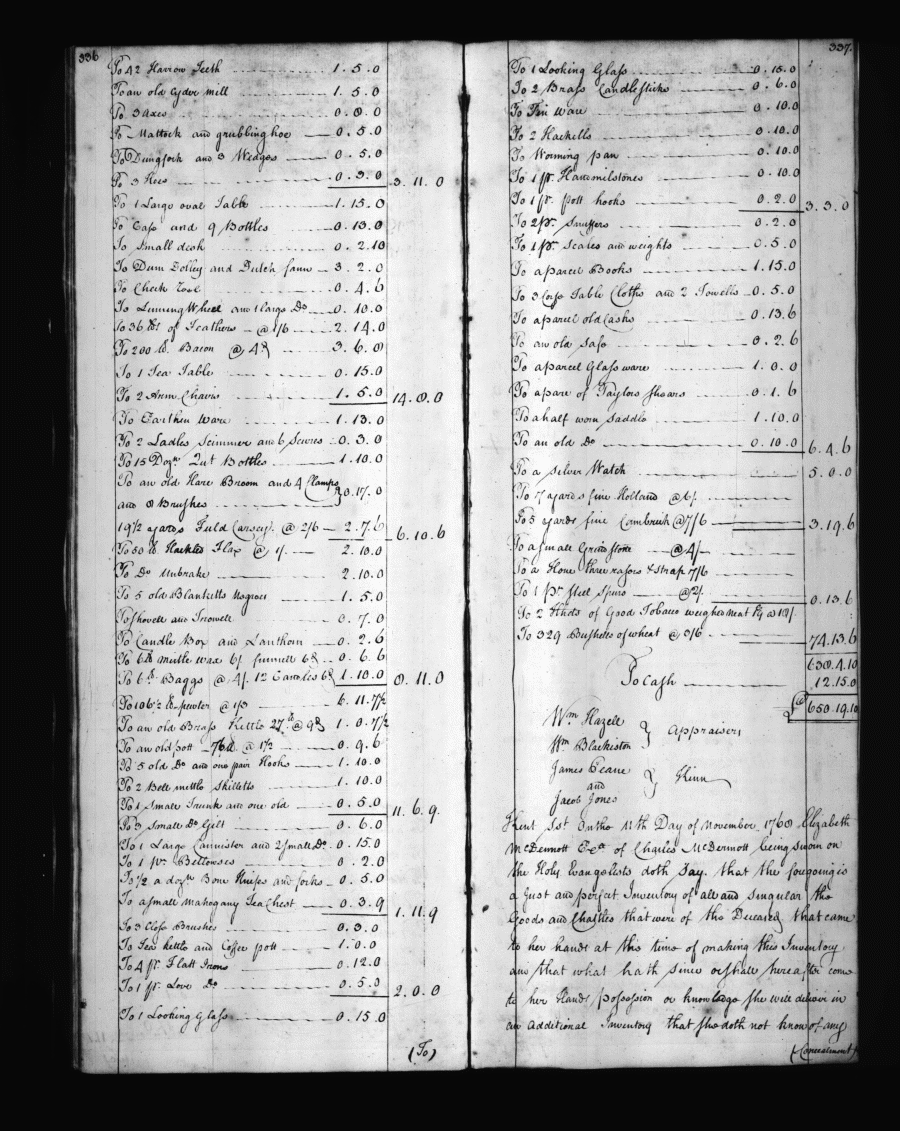 336
To 42 Harrow Teeth 1.5.0
To an old Cyder mill 1.5.0
To 3 axes 0.8.0
To Mattock and grubbing hoe 0.5.0
To Dungfork and 3 Wedges 0.5.0
To 3 Hoes 0.3.0 3.11.0
To 1 Large oval Table 1.15.0
To Case and 9 Bottles 0.13.0
To Small desk 0.2.10
To Dum Dolley and Dutch fann 3.2.0
To Check Reel 0.4.6
To Linning Wheel and 1 large Do 0.10.0
To 36 lbs of Feathers @ 1/6 2.14.0
To 200 lb. Bacon @ 4d 3.6.8
To 1 Tea Table 0.15.0
To 2 Arm Chairs 1.5.0 14.8.0
To Earthen Ware 1.13.0
To 2 Ladles Scimmer and 6 0.3.0
To 15 Dozn Qut Bottles 1.10.0
To an old Hare Broom and 4 Clamps
and 8 Brushes 0.17.0
19½ yards Fuld Carsey @ 2/6 2.7.6 6.10.6
To 50 lb Hackled Flax @ 1/. 2.10.0
To Do Unbrake 2.10.0
To 5 old Blanketts Negroes 1.5.0
To Shovell and Trowell 0.7.0
To Candle Box and Lanthorn 0.2.6
To 6lb mirtle wax 6/ funnell 6d 0.6.6
To 6 Baggs @ 4/. 12 Candles 6d 1.10.0 8.11.0
To 106½ lb pewter @ 1/3 6.11.7½
To an old Brass Kettle 27lb @ 9d 1.0.7½
To an old pott 76lb @ 1½ 0.9.6
To 5 old Do and one pair Hooks 1.10.0
To 2 Bell mettle Skilletts 1.10.0
To 1 Small Trunk and one old 0.5.0 11.6.9.
To 3 Small Do Gilt 0.6.0
To 1 Large Cannister and 2 Small Do 0.15.0
To 1 pr. Bellowses 0.2.0
To ½ a dozn Bone Knifes and forks 0.5.0
To a small Mahogany Tea Chest 0.3.9 1.11.9
To 3 Close Brushes 0.3.0
To Tea kettle and Coffee pott 1.0.0
To 4 pr. Flatt Irons 0.12.0
To 1 pr. Do 0.5.0 2.0.0
To 1 Looking Glass 0.15.0
(To)
337.
To 1 Looking Glass 0.15.0
To 2 Brass Candlesticks 0.6.0
To Tin ware 0.10.0
To 2 Hackells 0.10.0
To Worming pan 0.10.0
To 1 pr. Handmilstones 0.10.0
To 1 pr. pott hooks 0.2.0 3.3.0
To 2 pr. Snuffers 0.2.0
To 1 pr. Scales and weights 0.5.0
To a parcel Books 1.15.0
To 3 Corse Table Cloths and 2 Towells 0.5.0
To a parcel old Casks 0.13.6
To an old Safe 0.2.6
To a parcel Glass ware 1.0.0
To a pare of Taylors Shears 0.1.6
To a half worn Saddle 1.10.0
To an old Do 0.10.0 6.4.6
To a Silver Watch 5.0.0
To 7 yards fine Holland @ 6/.
To 5 yards fine Cambrick @ 7/6 3.19.6
To a small Grindstone @ 4/
To a Hone three rasors & Strap 7/6
To 1 pr Steel Spurs @ 2/. 0.13.6
To 2 Hhds of Good Tobacco weighed neat
To 329 Bushells of wheat @ 3/6 74.13.6
638.4.10
To Cash 12.15.0
650.19.10
Wm Hazell
Wm Blackiston } Appraisers
James Peane
and
Jacob Jones } Skinn
Kent Sst. On the 11th Day of November 1768 Elizabeth
McDermott Exx of Charles McDermott being sworn on
the Holy Evangelists doth say. that the foregoing is
a Just and perfect Inventory of all and Singular the
Goods and Chattles that were of the Deceased that came
to her hands at this time of making this Inventory.
and that what hath since or shall hereafter come
to her Hands possession or knowledge She will deliver in
an Additional Inventory that she doth not know of any
(Concealment)